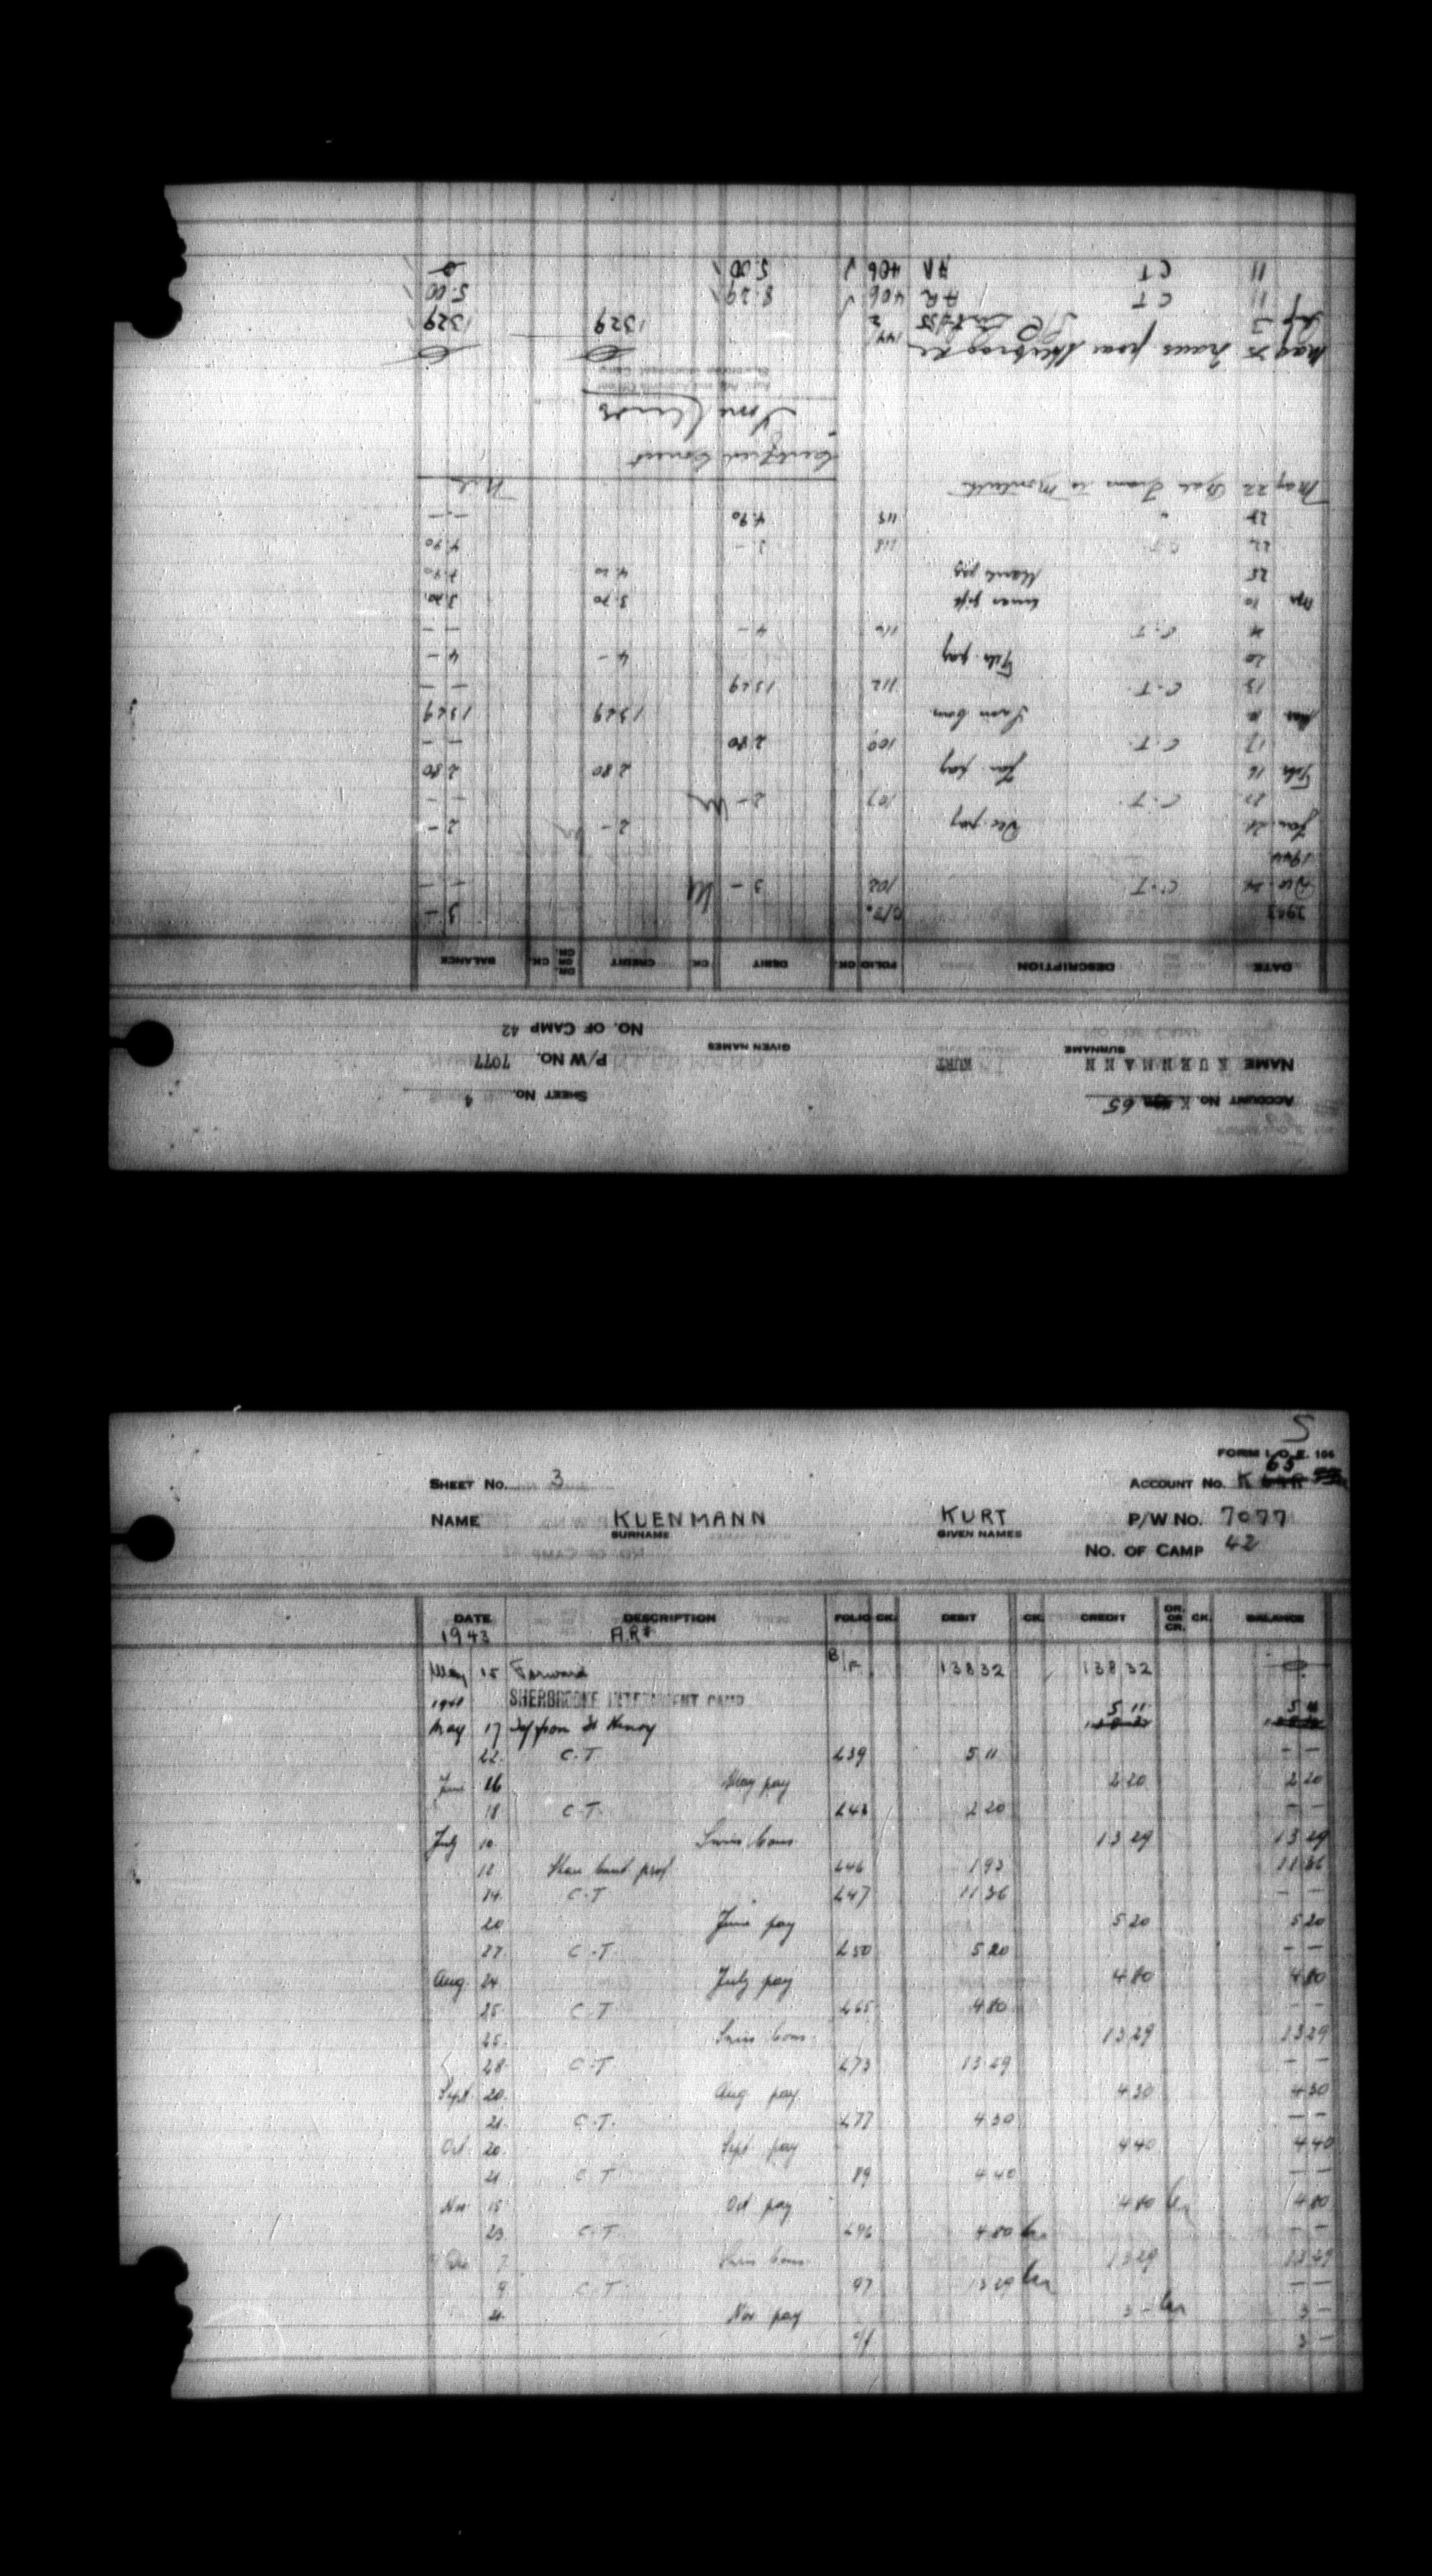 ACCOUNT No. K 65
SHEET No. 4
NAME KUENMANN KURT P/W No. 7077
SURNAME GIVEN NAMES
NO. OF CAMP 42
DATE DESCRIPTION FOLIO CK. DEBIT CK. CREDIT DR. OR CR. CK. BALANCE
1943 3 -
Dec. C.T 102 3 - - -
1944
Jan. 21 Dec. pay 2 - 2 -
C.T. 107 2 - - -
Feb 16 Jan. pay 2 80 2 80
17 C.T. 109 2 80 - -
Mar 13 29 13 29
13 C.T. 112 13 29 - -
20 Feb. pay 4 - 4 -
C.T. 116 4 - - -
Apr 10 3.70 3.70
25 March pay 4.20 7.90
C.T. 118 3 - 4.90
" 4.90 - -
May 22 Bal Trans to Monteith Nil
Certified Correct
May Trans from Sherbrooke
1329 1329
11 CT AR 406 8.29 5.00
11 CT AR 406 5.00
S
FORM I.O.E. 106
SHEET No. 3 ACCOUNT No. K 65
NAME KUENMANN KURT P/W No. 7077
SURNAME GIVEN NAMES
NO. OF CAMP 42
DATE DESCRIPTION FOLIO CK. DEBIT CK. CREDIT DR. OR CR. CK. BALANCE
1943
May 15 Forward B/F 138 32 138 32
SHERBROOKE INTERNMENT CAMP
May 17 from St Henry 5 11 5 11
22 C.T. L39 5 11 - -
June 16 May pay 2 20 2 20
18 C.T. L43 2 20 - -
July 10 13 29 13 29
12 L46 1 93 11 36
14 C.T L47 11 36 - -
20 June pay 5 20 5 20
27 C.T. L50 5 20 - -
Aug. 24 July pay 4 80 4 80
25 C.T L65 4 80 - -
25 13 29 13 29
28 C.T L73 13 29 - -
Sept. 20 Aug pay 4 30 4 30
21 C.T. L77 4 30 - -
Oct 20 Sept pay 4 40 4 40
21 C.T 89 4 40 - -
Nov 15 Oct pay 4 80 4 80
23 C.T. L96 4 80 - -
Dec 7 13 29 13 29
9 C.T 97 13 29 - -
21 Nov pay 3 - 3 -
c/f 3 -